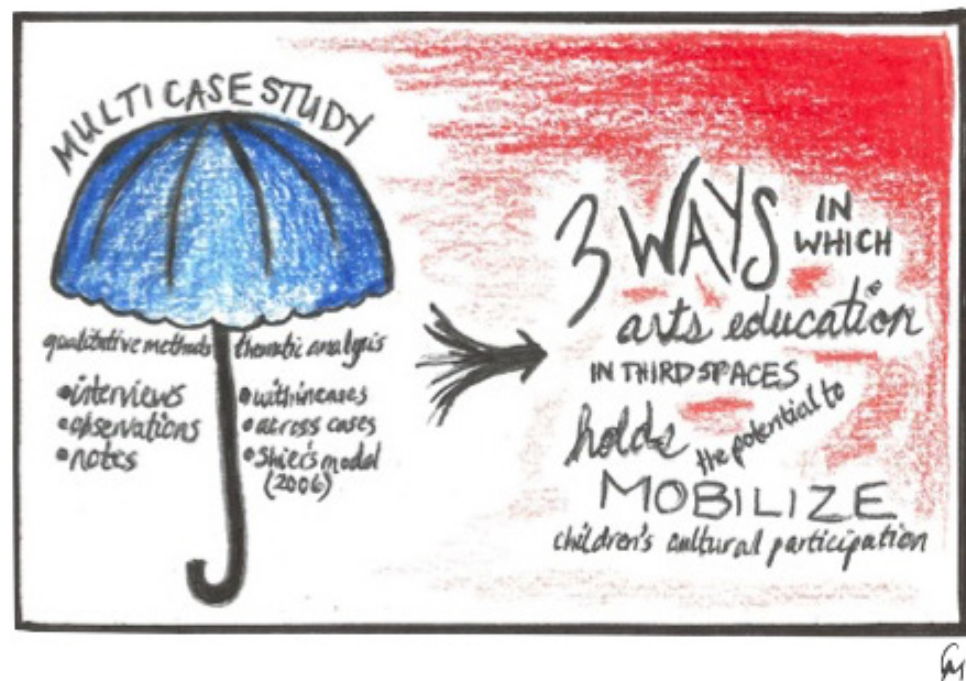 MULTI CASE STUDY
qualitative methods
• interviews
• observations
• notes
thematic analysis
• within cases
• across cases
• Shier's model
(2006)
3 WAYS IN
WHICH
arts education
IN THIRD SPACES
holds the potential to
MOBILIZE
children's cultural participation